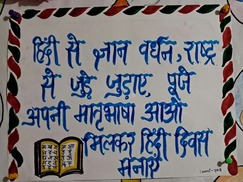 हिंदी से ज्ञान वर्धन, राष्ट्र
से जुड़े जुड़ाए, पूजे
अपनी मातृभाषा आओ
मिलकर हिंदी दिवस
मनाएं